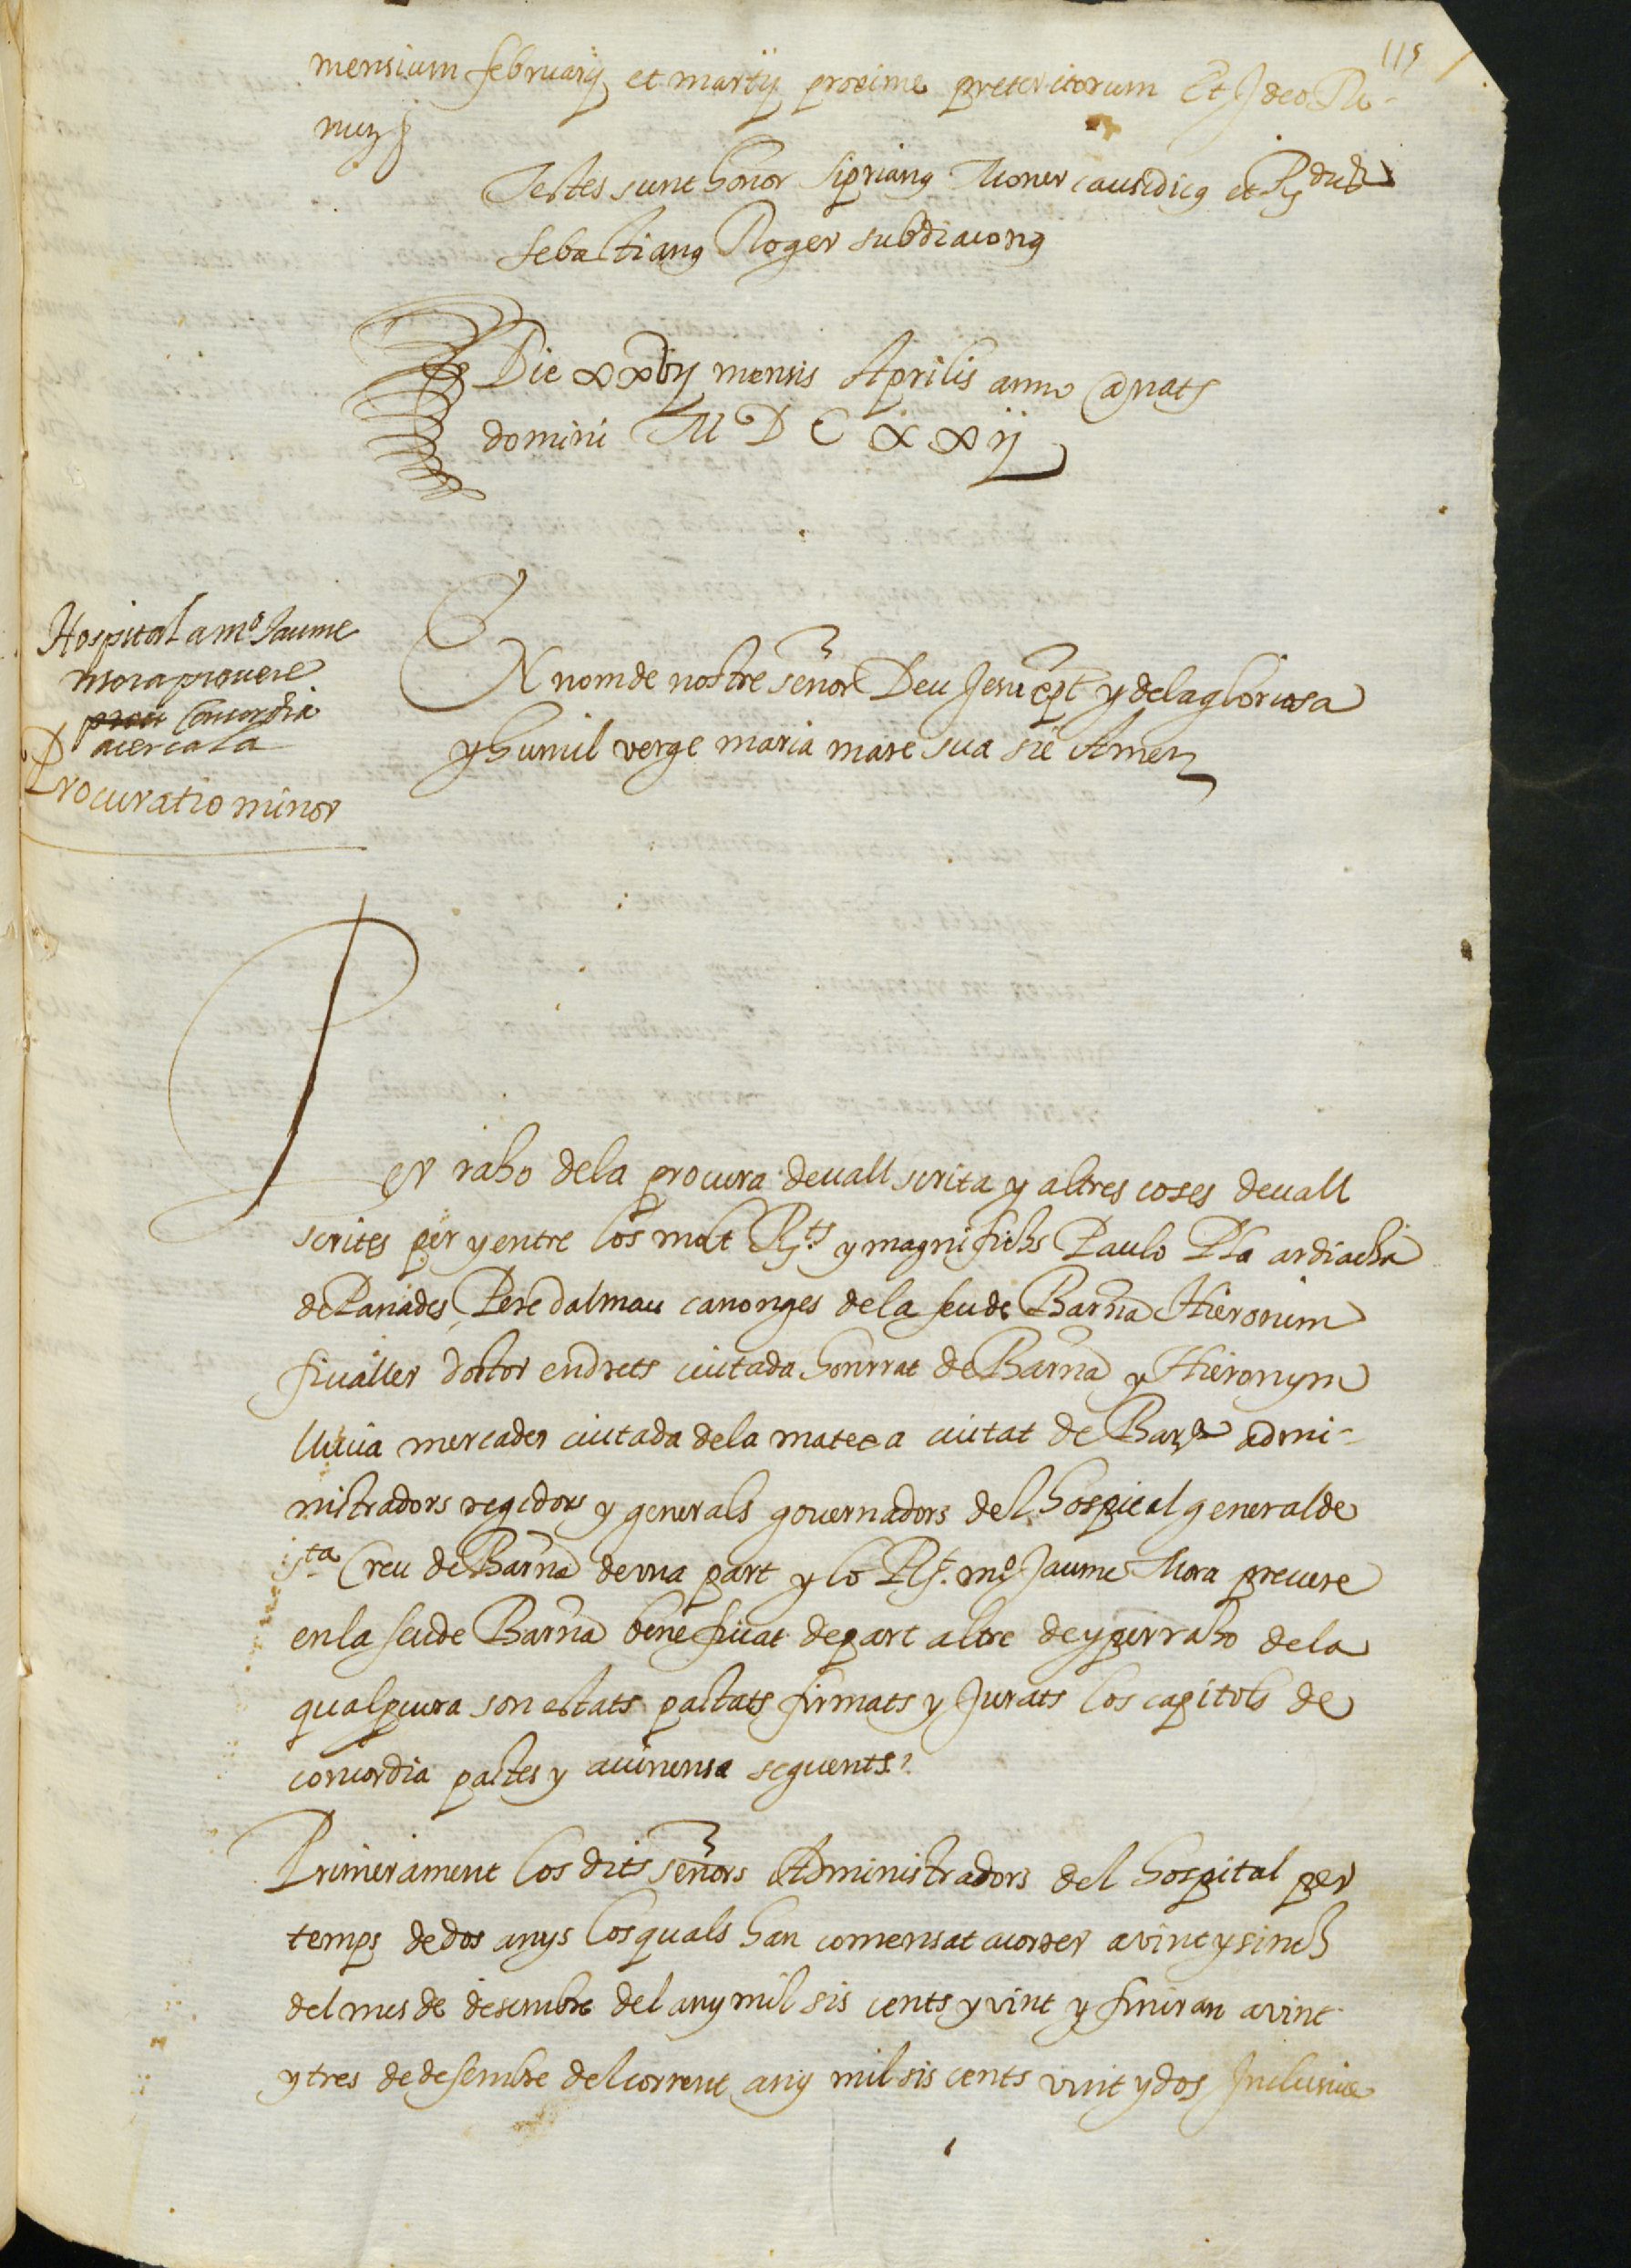 115
mensium februarij et martij proxime preteritorum Et Ideo Re-
nunz
Testes sunt honor Siprianus Moner causidicus et Rdus
Sebastianus Roger subdiaconus
Die xxvij mensis Aprilis anno a nats
domini M D C xxij
Hospital a mº Jaume
mora prevere
concordia
acerca la
Procuratio minor
EN nom de nostre señor Deu Jesu xpt y de la gloriosa
y humil verge maria mare sua sie Amen
Per raho de la procura devall scrita y altres coses devall
scrites per y entre los molt Rts y magnifichs Paulo Pla ardiacha
de Panades, Pere dalmau canonges de la seu de Barna Hieronim
fivaller doctor en drets ciutada honrrat de Barna y Hieronym
lluvia mercader ciutada de la matexa ciutat de Barna admi-
nistradors regidors y generals governadors del hospital general de
Sta Creu de Barna de una part y lo Rt. mº Jaume Mora prevere
en la seu de Barna beneficiat de part altre de y per raho de la
qual pcura son estats pactats firmats y Jurats los capitols de
concordia pactes y avinensa seguents.
Primerament los dits señors Administradors del hospital per
temps de dos anys los quals han comensat a correr a vint y sinch
del mes de desembre del any mil sis cents y vint y finiran a vint
y tres de desembre del corrent any mil sis cents vint y dos Inclusive